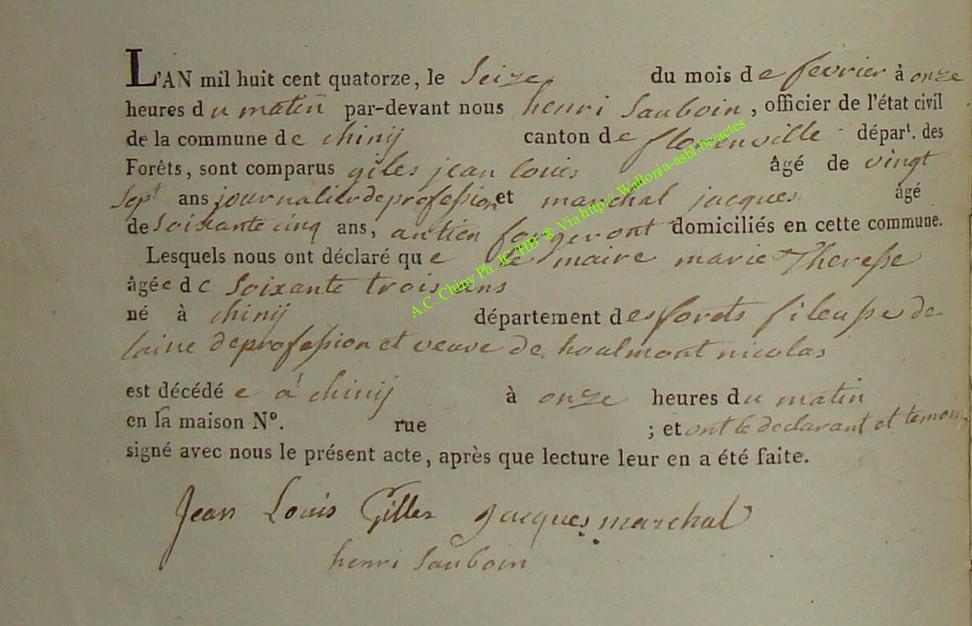 L'AN mil huit cent quatorze, le Seize du mois de fevrier à onze
heures du matin par-devant nous henri Sauboin, officier de l'état civil
de la commune de chinij canton de florenville départ. des
Forêts, sont comparus giles jean louis âgé de vingt
sept ans journalier de profession et marchal jacques âgé
de Soixante cinq ans, antien forgeront domiciliés en cette commune.
Lesquels nous ont déclaré que le maire marie Therese
âgée de Soixante trois ans
né à chinij département des forets fileuse de
laine de profession et veuve de houlmont nicolas
est décédé e a chinij à onze heures du matin
en la maison N°. rue ; et ont le declarant et temoin
signé avec nous le présent acte, après que lecture leur en a été faite.
Jean Louis Gilles jacques marchal
henri Sauboin
A.C. Chiny Ph. JC HB ® Via http// Wallonia-asbl-be/actes